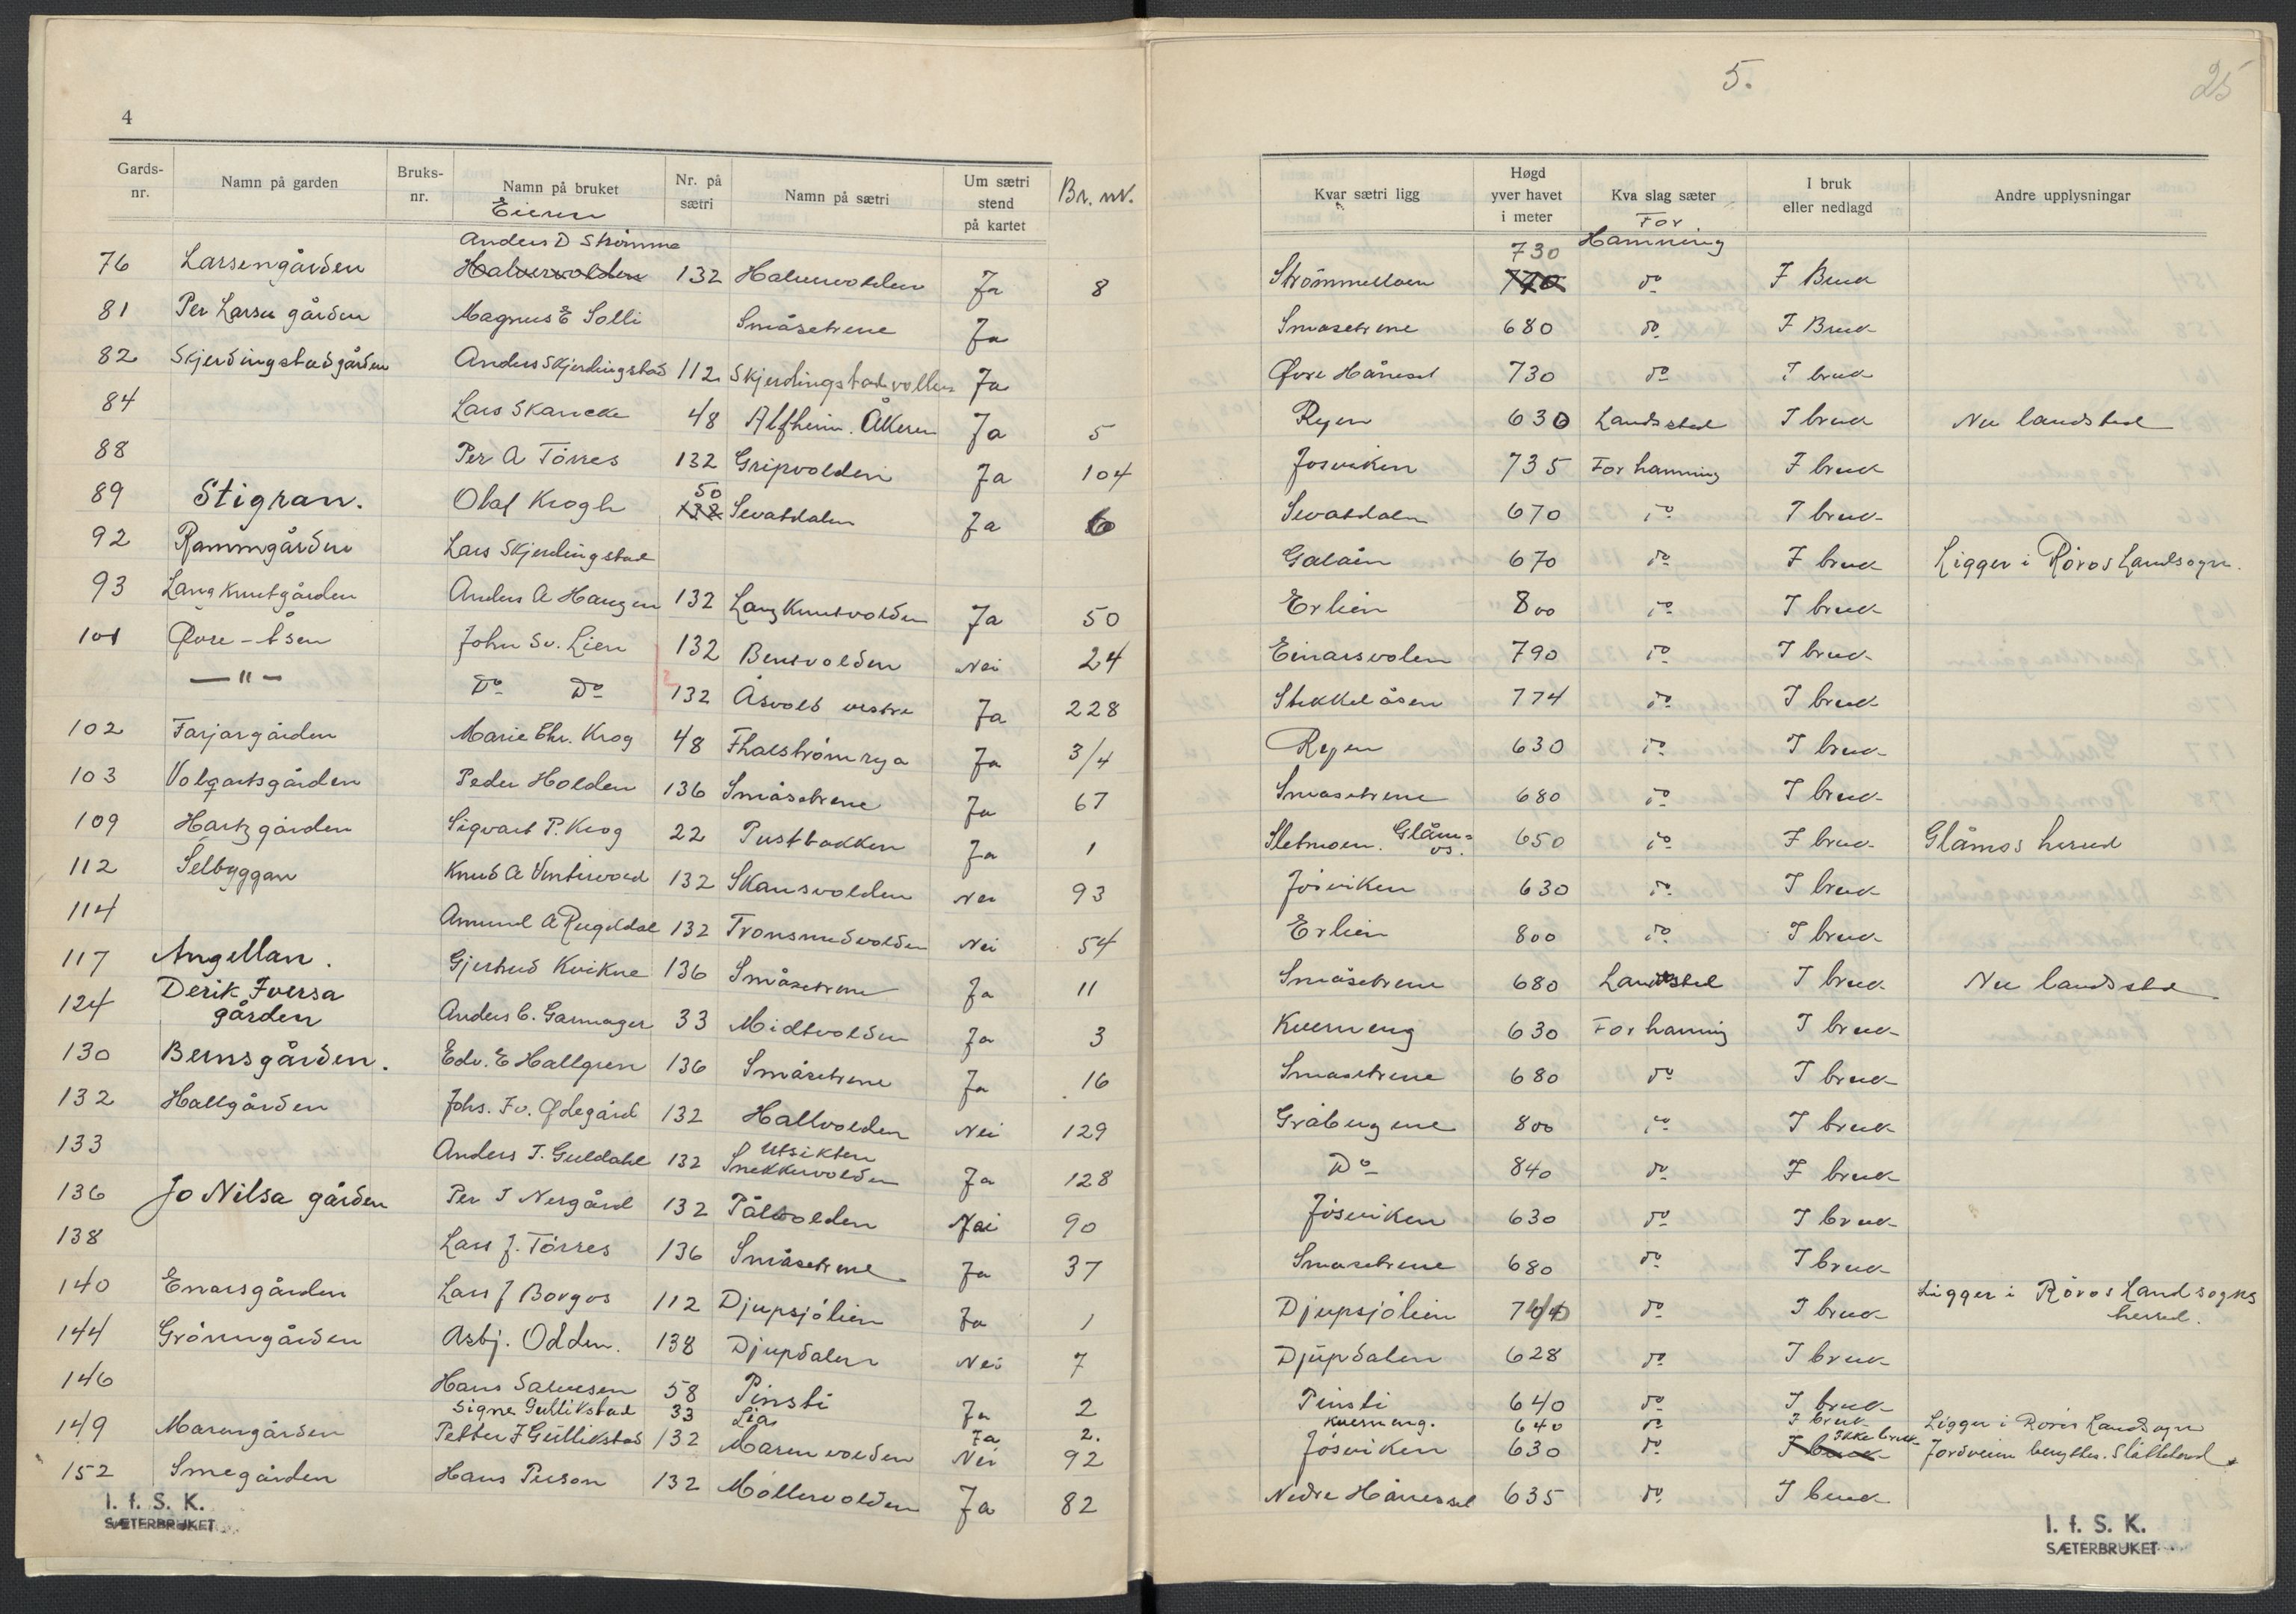 4
Gards-nr. Namn på garden Bruks-nr. Namn på bruket Nr. på sætri Namn på sætri Um sætri stend på kartet Br. nr.
Eieren
Anders D Strømme
76 Larsengården Halvorvolden 132 Halvorvolden Ja 8
81 Per Larsa gården Magnus E Solli Småsetrene Ja
82 Skjerdingstadgården Anders Skjerdingstad 112 Skjerdingstadvollen Ja
84 Lars Skancke 48 Alfheim. Åkeren Ja 5
88 Per A Törres 132 Gripvolden Ja 104
89 Stigran. Olaf Krogh 132 50 Sevatdalen Ja 6
92 Rammgården Lars Skjerdingstad
93 Langknutgården Anders A Haugen 132 Langknutvolden Ja 50
101 Øvre-Åsen John Sv. Lien 132 Bensvolden Nei 24
— " — Do Do 132 Åsvold vestre Ja 228
102 Farjargården Marie Chr. Krog 48 Fhalströmrya Ja 3/4
103 Volqartsgården Peder Holden 136 Småsetrene Ja 67
109 Hartzgården Sigvart P. Krog 22 Pustbakken Ja 1
112 Selbyggan Knud A Vintervold 132 Skansvolden Nei 93
114 Amund A Rugeldal 132 Tronsmedvolden Nei 54
117 Angellan. Gjertrud Kvikne 136 Småsetrene Ja 11
124 Derik Iversa gården Anders C. Garmager 33 Midtvolden Ja 3
130 Bernsgården. Edv. E Hallgren 136 Småsetrene Ja 16
132 Hallgården Johs. Iv. Ødegård 132 Hallvolden Nei 129
133 Anders T. Guldahl 132 Utsikten Snekkervolden Ja 128
136 Jo Nilsa gården Per J Nergård 132 Pålvolden Nei 90
138 Lars J. Törres 136 Småsetrene Ja 37
140 Enarsgården Lars J Borgos 112 Djupsjölien Ja 1
144 Grönngården Asbj. Odden. 138 Djupdalen Nei 7
146 Hans Salvesen 58 Pinsti Ja 2
Signe Gullikstad 33 Lia Ja 2.
149 Marengården Petter J Gullikstad 132 Marenvolden Nei 92
152 Smegården Hans Persson 132 Möllervolden Ja 82
I. f. S. K.
SÆTERBRUKET
5.
25
Kvar sætri ligg Høgd yver havet i meter Kva slag sæter I bruk eller nedlagd Andre upplysningar
For
730 Hamning
Strömmevollen 770 do I Bruk
Småsetrene 680 do I Bruk
Øvre Håneset 730 do I bruk
Ryen 630 Landsted I bruk Nu landsted
Josviken 735 For hamning I bruk
Sevatdalen 670 do I bruk
Galåen 670 do I bruk Ligger i Röros Landsogn.
Erlien 800 do I bruk
Einarsvolen 790 do I bruk
Stikkelåsen 774 do I bruk
Ryen 630 do I bruk
Småsetrene 680 do I bruk
Sletmoen. Glåmos. 650 do I bruk Glåmos herred
Jösviken 630 do I bruk
Erlien 800 do I bruk
Småsetrene 680 Landsted I bruk Nu landsted
Kverneng 630 For hamning I bruk
Småsetrene 680 do I bruk
Gråbergene 800 do I bruk
Do 840 do I bruk
Jösviken 630 do I bruk
Småsetrene 680 do I bruk
Djupsjölien 740 do I bruk Ligger i Röros Landsogns herred.
Djupdalen 628 do I bruk
Pinsti 640 do I bruk
Kverneng. 640 do I bruk Ligger i Röros Landsogn
Jösviken 630 do I bruk Ikke bruk Jordveien benyttes. Slåtteland
Nedre Hånesset 635 do I bruk
I. f. S. K.
SÆTERBRUKET